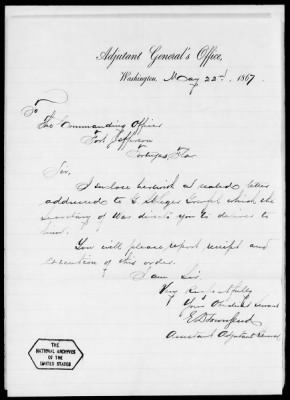 Adjutant General's Office,
Washington, May 22d, 1867
To
The Commanding Officer
Fort Jefferson
Tortugas Fla.
Sir,
I enclose herewith a sealed letter
addressed to G St Leger Grenfel which the
Secretary of War directs you to deliver to
him.
You will please report receipt and
execution of this order.
I am Sir,
Very Respectfully
Your Obedient servant
E D Townsend
Assistant Adjutant General
THE
NATIONAL ARCHIVES
OF THE
UNITED STATES